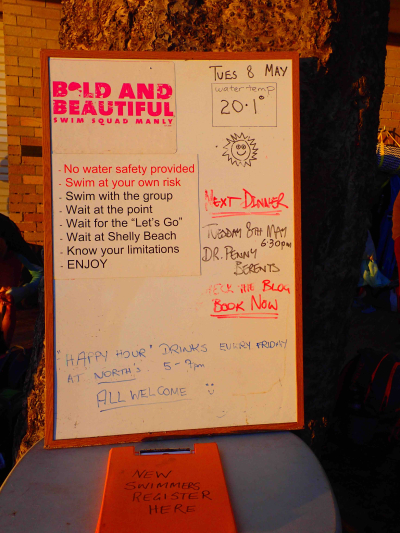 TUES 8 MAY
BOLD AND
BEAUTIFUL
SWIM SQUAD MANLY
water temp
20.1°
- No water safety provided
- Swim at your own risk
- Swim with the group
- Wait at the point
- Wait for the "Let's Go"
- Wait at Shelly Beach
- Know your limitations
- ENJOY
NEXT DINNER
TUESDAY 8TH MAY
6:30pm
DR. PENNY
BERENTS
THE BLOG
BOOK NOW
"HAPPY HOUR" DRINKS EVERY FRIDAY
AT NORTH'S. 5-7pm
ALL WELCOME
NEW
SWIMMERS
REGISTER
HERE